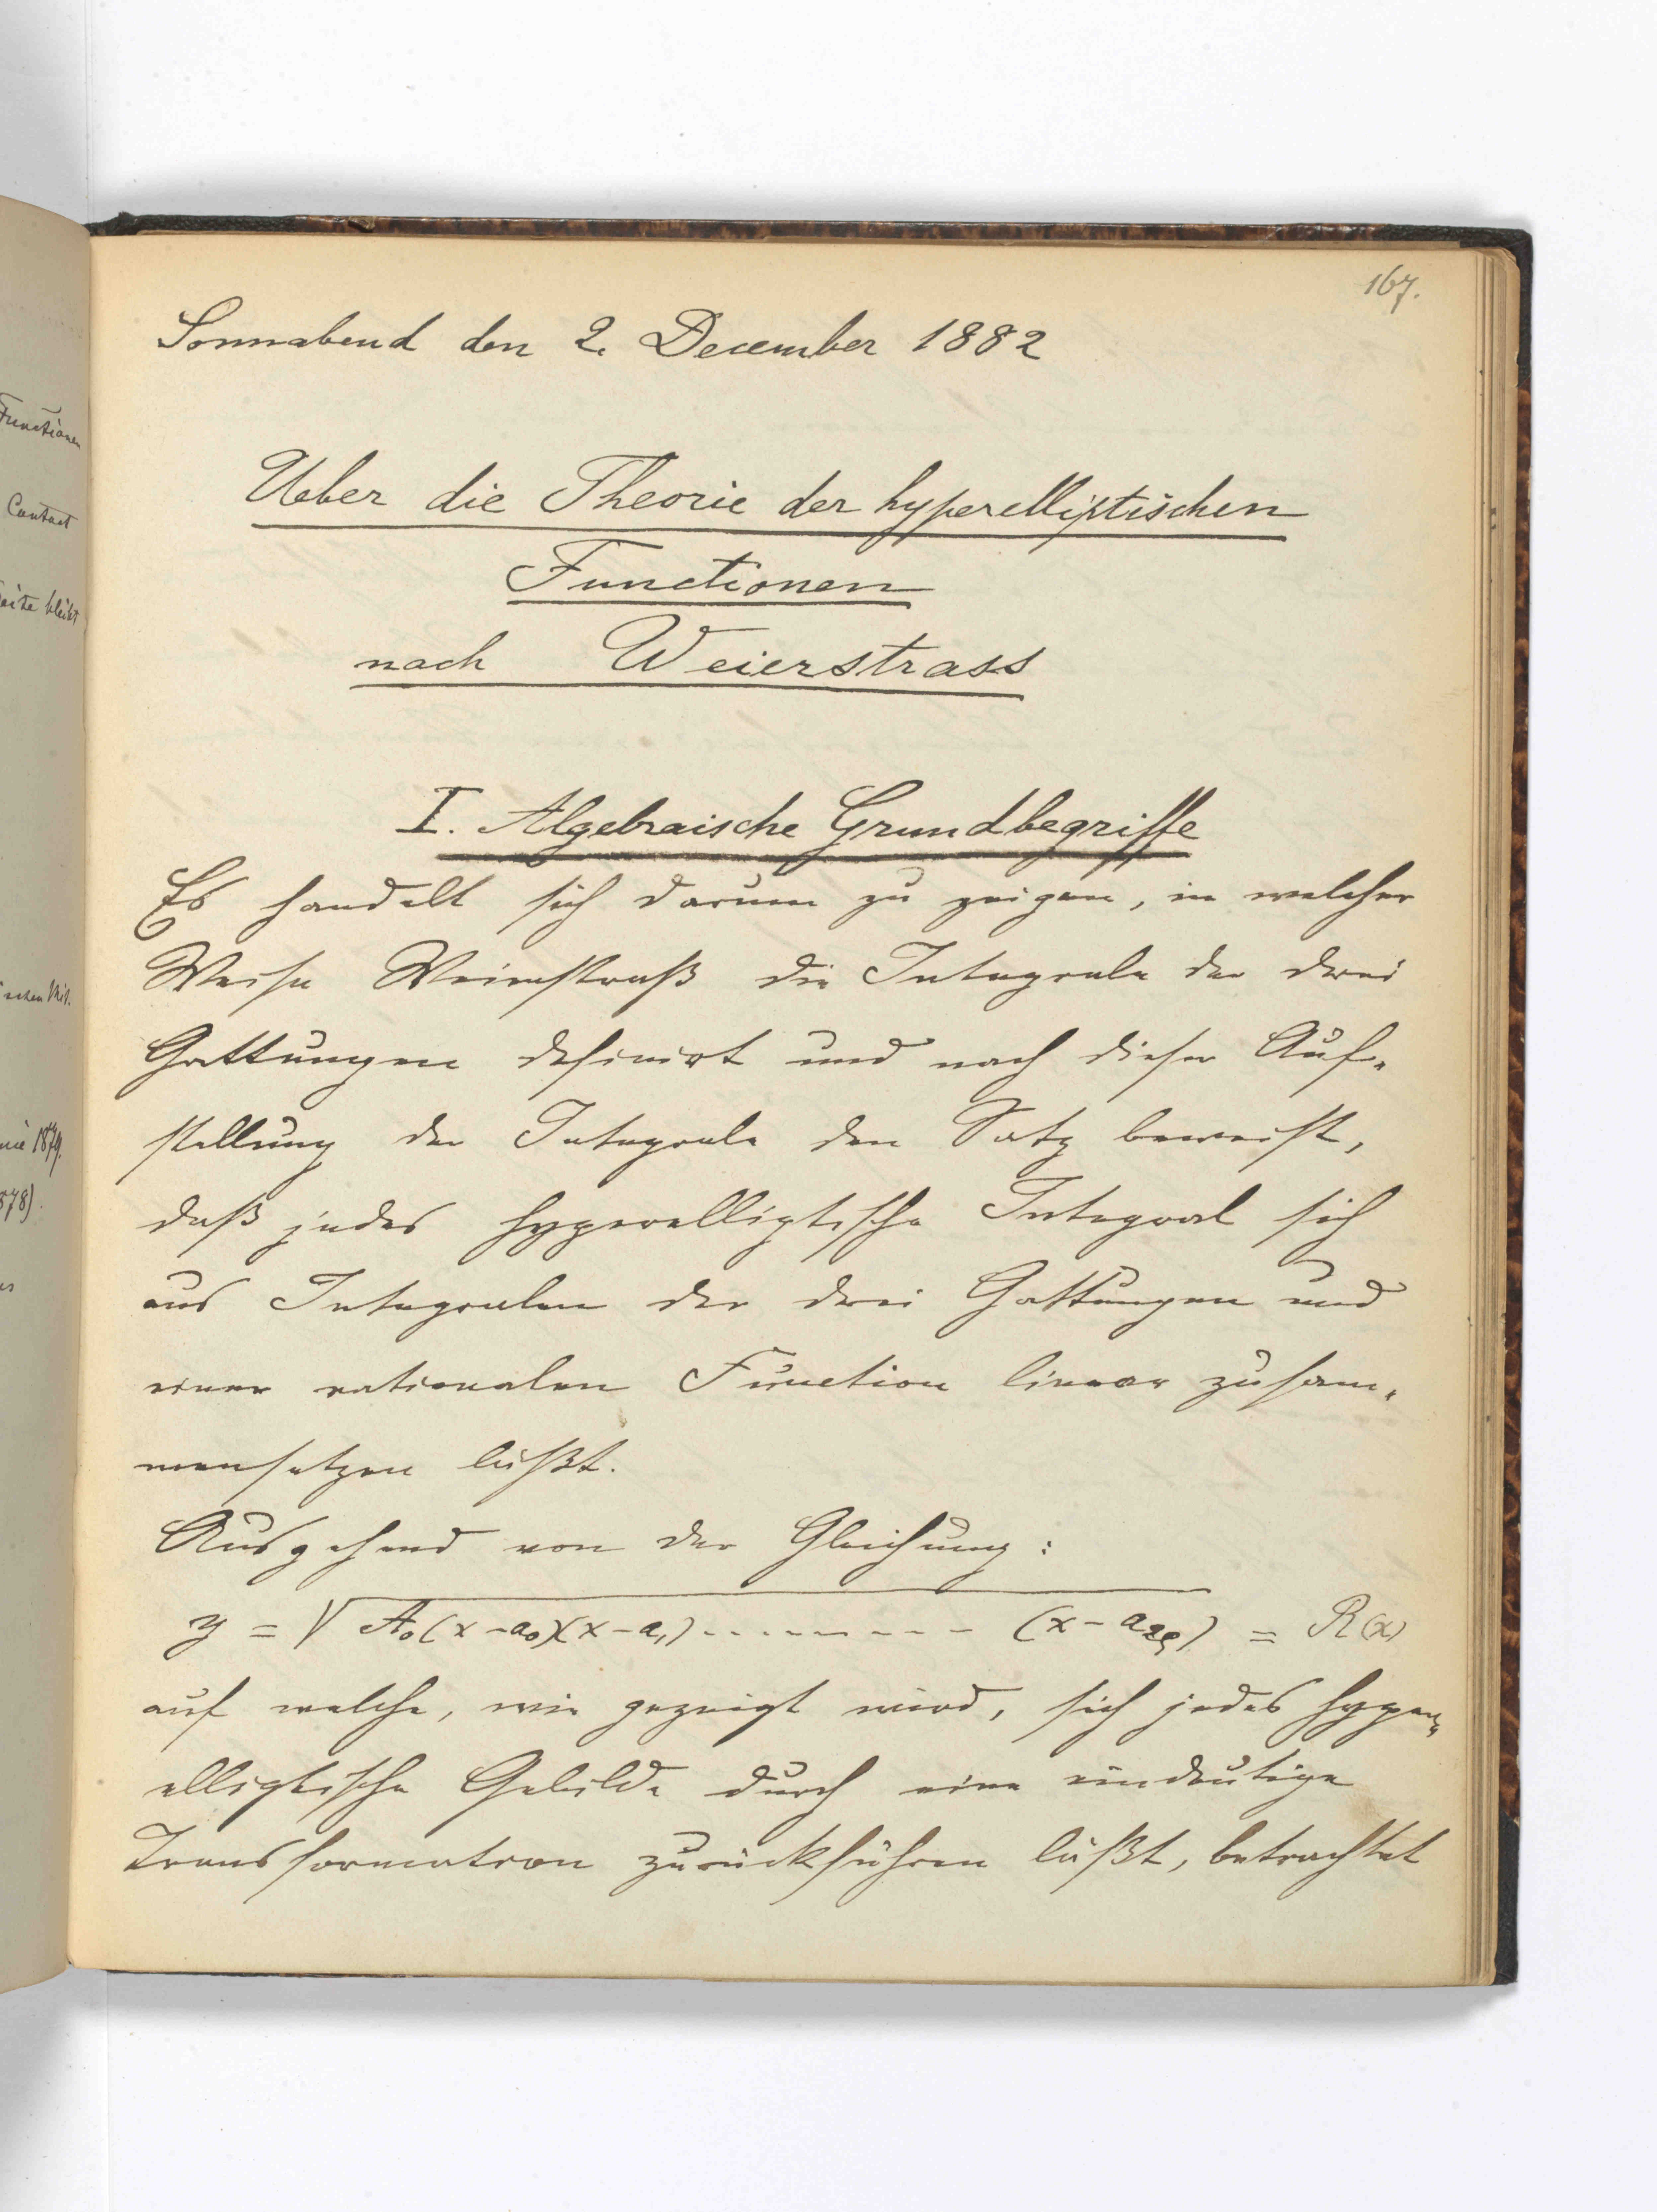 Functionen
Contact
bleibt
1879.
878).
167.
Sonnabend den 2. December 1882
Ueber die Theorie der hyperelliptischen
Functionen
nach Weierstrass
I. Algebraische Grundbegriffe
Es handelt sich darum zu zeigen, in welcher
Weise Weierstraß die Integrale der drei
Gattungen definirt und nach dieser Auf-
stellung der Integrale den Satz beweist,
daß jedes hyperelliptische Integral sich
aus Integralen der drei Gattungen und
einer rationalen Function linear zusam-
mensetzen läßt.
Ausgehend von der Gleichung:
y = √A₀(x-a₀)(x-a₁)--------- (x-a₂ϱ) = R(x)
auf welche, wie gezeigt wird, sich jedes hyper-
elliptische Gebilde durch eine eindeutige
Transformation zurückführen läßt, betrachtet